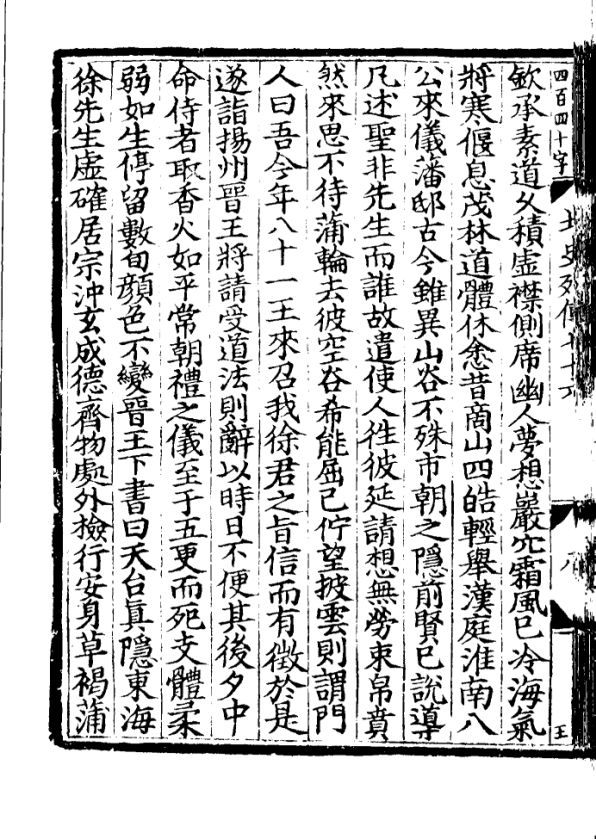 四百四十字
北史列傳七十六
八
王
欽承素道久積虛襟側席幽人夢想巖穴霜風已冷海氣
將寒偃息茂林道體休悆昔商山四皓輕舉漢庭淮南八
公來儀藩邸古今雖異山谷不殊市朝之隱前賢已說導
凡述聖非先生而誰故遣使人徃彼延請想無勞束帛賁
然來思不待蒲輪去彼空谷希能屈已佇望披雲則謂門
人曰吾今年八十一王來召我徐君之旨信而有徵於是
遂詣揚州晉王將請受道法則辭以時日不便其後夕中
命侍者取香火如平常朝禮之儀至于五更而死支體柔
弱如生停留數旬顏色不變晉王下書曰天台真隱東海
徐先生虛確居宗沖玄成德齊物處外撿行安身草褐蒲